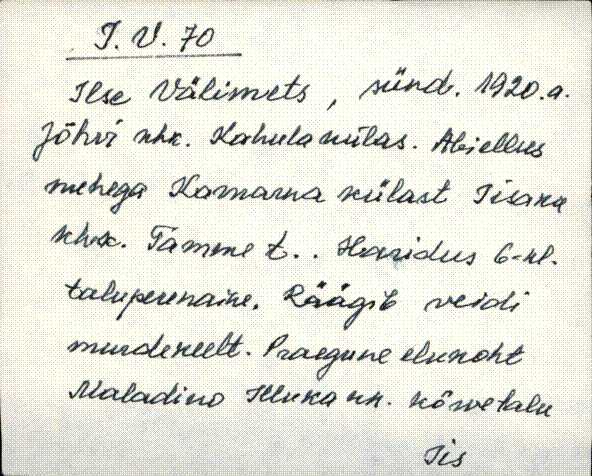 I. V. 70
Ilse Välimets, sünd. 1920.a.
Jõhvi khk. Kahula külas. Abiellus
mehega Kamarna külast Iisaku
khk. Tamme t.. Haridus 6-kl.
taluperenaine. Räägib veidi
murdekeelt. Praegune elukoht
Maladino Illuka kk. kõrvetalu
Iis